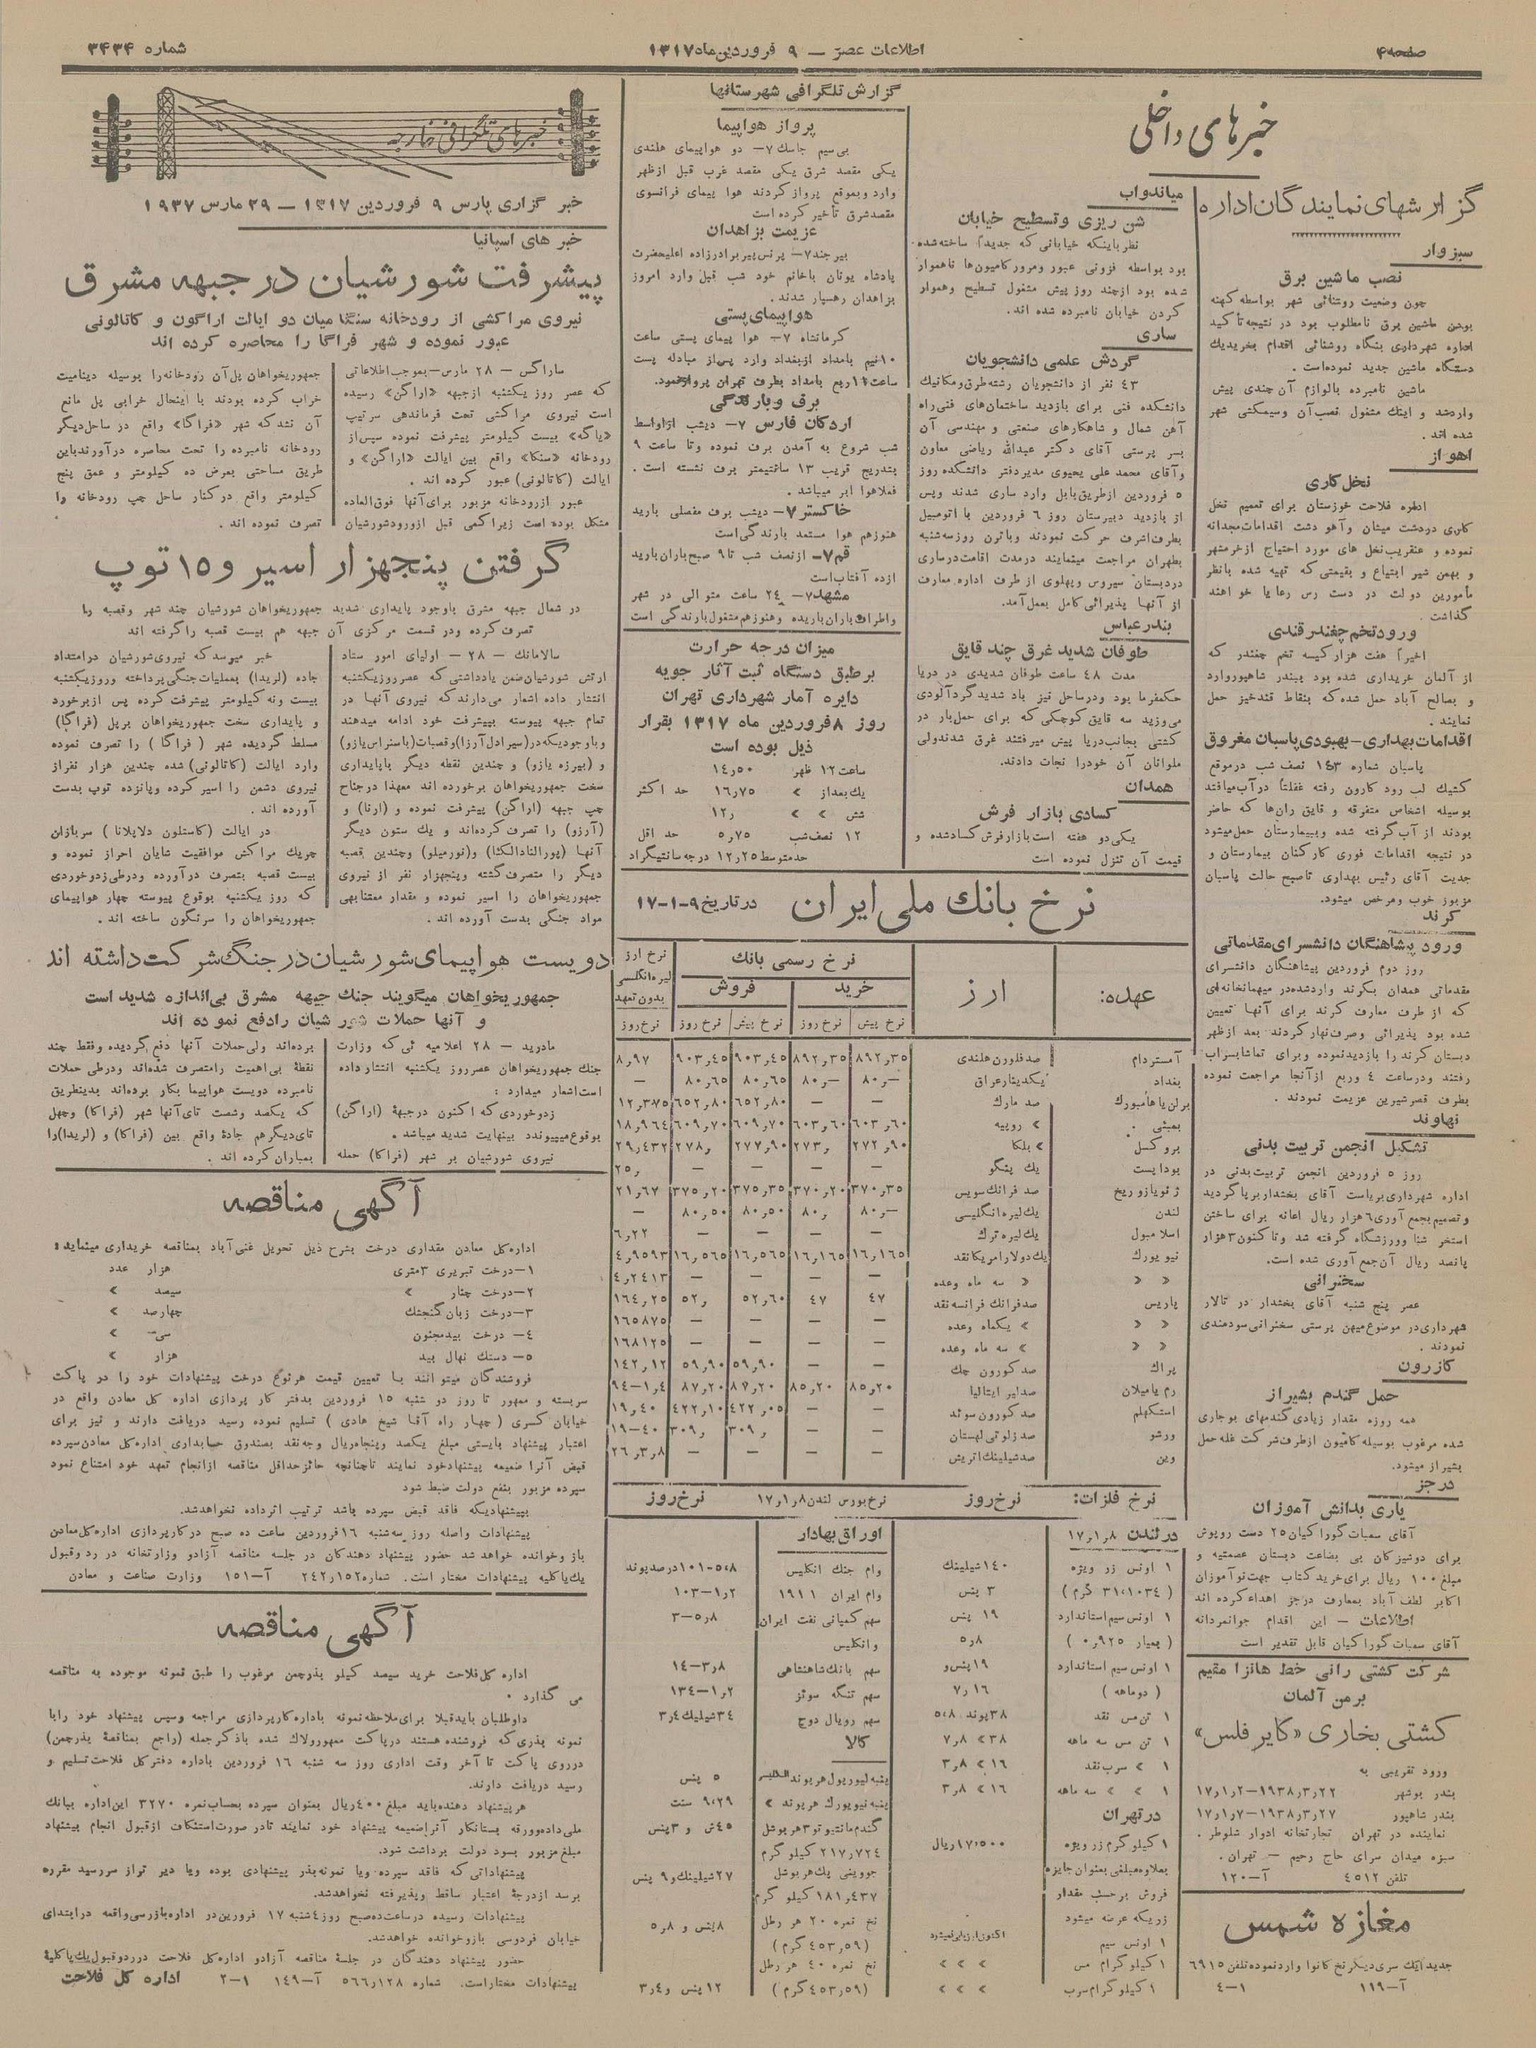 صفحه ۴
اطلاعات عصر – ۹ فروردین ماه ۱۳۱۷
شماره ۳۴۳۴
خبرهای داخلی
گزارشهای نمایندگان اداره
سبزوار
نصب ماشین برق
چون وضعیت روشنائی شهر بواسطه کهنه
بودن ماشین برق نامطلوب بود در نتیجه تأکید
اداره شهرداری بنگاه روشنائی اقدام بخریدیک
دستگاه ماشین جدید نموده‌است.
ماشین نامبرده بالوازم آن چندی پیش
واردشد و اینك مشغول نصب آن وسیمکشی شهر
شده اند.
اهواز
نخل کاری
اداره فلاحت خوزستان برای تعمیم نخل
کاری دردشت میشان وآهو دشت اقدامات مجدانه
نموده و عنقریب نخل های مورد احتیاج ازخرمشهر
و بهمن شیر ابتیاع و بقیمتی که تهیه شده بانظر
مأمورین دولت در دست رس رعایا خواهند
گذاشت.
ورودتخم چغندرقندی
اخیراً هفت هزار کیسه تخم چغندر که
از آلمان خریداری شده بود ببندر شاهپوروارد
و بصالح آباد حمل شده که بنقاط قندخیز حمل
نمایند.
اقدامات بهداری – بهبودی پاسبان مغروق
پاسبان شماره ۱۴۳ نصف شب درموقع
کشیك لب رود کارون رفته غفلتاً درآب میافتد
بوسیله اشخاص متفرقه و قایق ران‌ها که حاضر
بودند از آب گرفته شده وبیمارستان حمل میشود
در نتیجه اقدامات فوری کارکنان بیمارستان و
جدیت آقای رئیس بهداری تاصبح حالت پاسبان
مزبور خوب ومرخص میشود.
کرند
ورود پیشاهنگان دانشسرای مقدماتی
روز دوم فروردین پیشاهنگان دانشسرای
مقدماتی همدان بکرند واردشده در میهمانخانه‌ای
که از طرف معارف کرند برای آنها تعیین
شده بود پذیرائی وصرف نهارکردند بعد ازظهر
دبستان کرند را بازدیدنموده وبرای تماشابسراب
رفتند ودرساعت ٤ وربع ازآنجا مراجعت نموده
بطرف قصرشیرین عزیمت نمودند.
نهاوند
تشکیل انجمن تربیت بدنی
روز ٥ فروردین انجمن تربیت‌بدنی در
اداره شهرداری بریاست آقای بخشدار برپا گردید
وتصمیم بجمع آوری ٦ هزار ریال اعانه برای ساختن
استخر شنا وورزشگاه گرفته شد وتاکنون ۳ هزار
پانصد ریال آن جمع آوری شده است.
سخنرانی
عصر پنج شنبه آقای بخشدار در تالار
شهرداری در موضوع میهن پرستی سخنرانی سودمندی
نمودند.
کازرون
حمل گندم بشیراز
همه روزه مقدار زیادی گندمهای بوجاری
شده مرغوب بوسیله کامیون ازطرف شرکت غله حمل
بشیراز میشود.
درجز
یاری بدانش آموزان
آقای سمبات گوراکیان ۲۵ دست روپوش
برای دوشیزکان بی بضاعت دبستان عصمتیه و
مبلغ ۱۰۰ ریال برای خرید کتاب جهت نوآموزان
اکابر لطف آباد بمعارف درجز اهداء کرده اند
اطلاعات – این اقدام جوانمردانه
آقای سمبات گوراکیان قابل تقدیر است
شرکت کشتی رانی خط هانزا مقیم
برمن آلمان
کشتی بخاری «کایر فلس»
ورود تقریبی به
بندر بوشهر ۱۷٫۱٫۲–۱۹۳۸٫۳٫۲۲
بندر شاهپور ۱۷٫۱٫۷–۱۹۳۸٫۳٫۲۷
نماینده در تهران تجارتخانه ادوار شلوطر.
سبزه میدان سرای حاج رحیم – تهران.
تلفن ٤٥۱۲ آ–۱۲۰
مغازه شمس
جدیداً یك سری دیگر نخ کانوا وارد نموده تلفن ٦۹۱٥
آ–۱۱۹ ۱–٤
میاندواب
شن ریزی وتسطیح خیابان
نظر باینکه خیابانی که جدیداً ساخته شده
بود بواسطه فزونی عبور ومرور کامیون‌ها ناهموار
شده بود ازچند روز پیش مشغول تسطیح وهموار
کردن خیابان نامبرده شده اند.
ساری
گردش علمی دانشجویان
٤۳ نفر از دانشجویان رشته طرق ومکانیك
دانشکده فنی برای بازدید ساختمان‌های فنی راه
آهن شمال و شاهکارهای صنعتی و مهندسی آن
بسر پرستی آقای دکتر عبدالله ریاضی معاون
وآقای محمد علی یحیوی مدیردفتر دانشکده روز
٥ فروردین ازطریق بابل وارد ساری شدند وپس
از بازدید دبیرستان روز ٦ فروردین با اتومبیل
بطرف اشرف حرکت نمودند وباترن روزسه‌شنبه
بطهران مراجعت مینمایند درمدت اقامت درساری
در دبستان سیروس وپهلوی از طرف اداره معارف
از آنها پذیرائی کامل بعمل آمد.
بندرعباس
طوفان شدید غرق چند قایق
مدت ٤۸ ساعت طوفان شدیدی در دریا
حکمفرما بود ودرساحل نیز باد شدید گردآلودی
می‌وزید سه قایق کوچکی که برای حمل بار در
کشتی بجانب دریا پیش میرفتند غرق شدندولی
ملوانان آن خودرا نجات دادند.
همدان
کسادی بازار فرش
یکی دو هفته است بازارفرش کسادشده و
قیمت آن تنزل نموده است
گزارش تلگرافی شهرستانها
پرواز هواپیما
بی‌سیم جاسك ۷– دو هواپیمای هلندی
یکی مقصد شرق یکی مقصد غرب قبل ازظهر
وارد وبموقع پرواز کردند هوا پیمای فرانسوی
مقصدشرق تأخیر کرده است
عزیمت بزاهدان
بیرجند۷– پرنس پیر برادرزاده اعلیحضرت
پادشاه یونان باخانم خود شب قبل وارد امروز
بزاهدان رهسپار شدند.
هواپیمای پستی
کرمانشاه ۷– هوا پیمای پستی ساعت
۱۰نیم بامداد ازبغداد وارد پس‌از مبادله پست
ساعت ۱۱ربع بامداد بطرف تهران پروازنمود.
برق وبارندگی
اردکان فارس ۷– دیشب ازاواسط
شب شروع به آمدن برف نموده وتا ساعت ۹
بتدریج قریب ۱۳ سانتیمتر برف نشسته است.
فعلاهوا ابر میباشد.
خاکستر ۷– دیشب برف مفصلی بارید
هنوزهم هوا مستعد بارندگی است
قم ۷– ازنصف شب تا۹ صبح باران بارید
ازده آفتاب است
مشهد ۷– ۲٤ ساعت متوالی در شهر
واطراف باران باریده وهنوزهم مشغول بارندگی است
میزان درجه حرارت
برطبق دستگاه ثبت آثار جویه
دایره آمار شهرداری تهران
روز ۸ فروردین ماه ۱۳۱۷ بقرار
ذیل بوده است
ساعت ۱۲ ظهر ۱٤٫٥۰
یك بعداز » ۱٦٫۷٥ حد اکثر
شش » » ۱۲٫
۱۲ نصف شب ٥٫۷٥ حد اقل
حد متوسط ۱۲٫۲٥ درجه سانتیگراد
نرخ بانك ملی ایران در تاریخ ۹–۱–۱۷
عهده: ارز نرخ رسمی بانك نرخ ارز
خرید فروش لیره انگلیسی بدون تعهد
نرخ پیش نرخ روز نرخ پیش نرخ روز نرخ روز
آمستردام صدفلورن هلندی ۸۹۲٫۳٥ ۸۹۲٫۳٥ ۹۰۳٫٤٥ ۹۰۳٫٤٥ ۸٫۹۷
بغداد یکدینار عراق ۸۰٫– ۸۰٫– ۸۰٫٦٥ ۸۰٫٦٥ –
برلن یاهامبورك صد مارك – – ٦٥۲٫۸۰ ٦٥۲٫۸۰ ۱۲٫۳۷٥
بمبئی » روپیه ٦۰۳٫٦۰ ٦۰۳٫٦۰ ٦۰۹٫۷۰ ٦۰۹٫۷۰ ۱۸٫۹٦٤
بروکسل » بلگا ۲۷۲٫۹۰ ۲۷۳٫ ۲۷۷٫۹۰ ۲۷۸٫ ۲۹٫٤۳۲
بوداپست یك پنگو – – – – ۲٥٫
ژنویازوریخ صد فرانك سویس ۳۷۰٫۳٥ ۳۷۰٫۲۰ ۳۷٥٫۳٥ ۳۷٥٫۲۰ ۲۱٫٦۷
لندن یك لیره انگلیسی ۸۰٫– ۸۰٫ ۸۰٫٥۰ ۸۰٫٥۰ –
اسلامبول یك لیره ترك – – – – ٦٫۲۲
نیویورك یك دولار امریکا نقد ۱٦٫۱٦٥ ۱٦٫۱٦٥ ۱٦٫٥٦٥ ۱٦٫٥٦٥ ٤٫۹٥۹۳
» » » سه ماه وعده – – – – ٤٫۲٤۱۳
پاریس صدفرانك فرانسه نقد ٤۷ ٤۷ ٥۲٫٦۰ ٥۲٫ ۱٦٤٫۲٥
» » » یکماه وعده – – – – ۱٦٥۸۷٥
» » » سه ماه وعده – – – – ۱٦۸۱۲٥
پراك صدکورون چك – – ٥۹٫۹۰ ٥۹٫۹۰ ۱٤۲٫۱۲
رم یامیلان صدلیر ایتالیا ۸٥٫۲۰ ۸٥٫۲۰ ۸۷٫۲۰ ۸۷٫۲۰ ۹٤–۱٫٤
استکهلم صد کورون سوئد – – ٤۲۲٫۰٥ ٤۲۲٫۱۰ ۱۹٫٤۰
ورشو صدزلوتی لهستان – – ۳۰۹٫ ۳۰۹٫ ۱۹–٤۰
وین صدشیلینك اتریش – – – – ۲٦٫۳٫۸
نرخ فلزات: نرخ روز
در لندن ۱۷٫۱٫۸
۱ اونس زر ویژه ۱٤۰ شیلینك
(۳۱٫۱۰۳٤ گرم) ۳ پنس
۱ اونس سیم استاندارد ۱۹ پنس
(بعیار ۰٫۹۲٥) ٥٫۸
۱ اونس سیم استاندارد ۱۹ پنس و
(دوماهه) ۷٫۱٦
۱ تن مس نقد ۳۸ پوند ٥٫۸
۱ تن مس سه ماهه ۳۸ » ۷٫۸
۱ » سرب نقد ۱٦ » ۳٫۸
۱ » » سه ماهه ۱٦ » ۳٫۸
در تهران
۱ کیلوگرم زر ویژه ۱۷٫٥۰۰ ریال
بعلاوه مبلغی بعنوان جایزه
فروش برحسب مقدار
زریکه عرضه میشود
۱ اونس سیم
۱ کیلوگرام مس » » »
۱ کیلوگرام سرب » » »
نرخ بورس لندن ۱۷٫۱٫۸ نرخ روز
اوراق بهادار
وام جنك انگلیس ۱۰۱–٥٫۸ درصد پوند
وام ایران ۱۹۱۱ ۱۰۳–۱٫۲
سهم کمپانی نفت ایران ۳–٥٫۸
وانگلیس
سهم بانك شاهنشاهی ۱٤–۳٫۸
سهم تنگه سوئز ۱۳٤–۱٫۲
سهم رویال دوچ ۳٤ شیلیك ۳٫٤
کالا
پنبه لیورپول هر پوند انگلیس ٥ پنس
پنبه نیویورك هر پوند » ۹٫۲۹ سنت
گندم مانیتوتو۳ هر بوشل ٤٥ش و ۳ پنس
۲۱۷٫۷۲٤ کیلو گرم
جووینی یك هر بوشل ۲۷ شیلینك و ۹ پنس
۱۸۱٫٤۳۷ کیلو گرم
نخ نمره ۲۰ هر رطل ۸ پنس و ٥٫۸
(٤٥۳٫٥۹ گرم)
نخ نمره ٤۰ هر رطل
(٤٥۳٫٥۹ گرم) ۱۲ پنس و ۳٫٤
خبرهای تلگرافی خارجه
خبر گزاری پارس ۹ فروردین ۱۳۱۷ – ۲۹ مارس ۱۹۳۷
خبر های اسپانیا
پیشرفت شورشیان در جبهه مشرق
نیروی مراکشی از رودخانه سنگا میان دو ایالت اراگون و کاتالونی
عبور نموده و شهر فراگا را محاصره کرده اند
ساراگس – ۲۸ مارس – بموجب اطلاعاتی
که عصر روز یکشنبه ازجبهه «اراگن» رسیده
است نیروی مراکشی تحت فرماندهی سرتیپ
«یاگه» بیست کیلومتر پیشرفت نموده سپس از
رودخانه «سنکا» واقع بین ایالت «اراگن» و
ایالت (کاتالونی) عبور کرده اند.
عبور ازرودخانه مزبور برای آنها فوق‌العاده
مشکل بوده است زیرا کمی قبل ازورودشورشیان
جمهوریخواهان پل آن رودخانه‌را بوسیله دینامیت
خراب کرده بودند با اینحال خرابی پل مانع
آن نشد که شهر «فراگا» واقع در ساحل دیگر
رودخانه نامبرده را تحت محاصره درآورند باین
طریق مساحتی بعرض ده کیلومتر و عمق پنج
کیلومتر واقع درکنار ساحل چپ رودخانه را
تصرف نموده اند.
گرفتن پنجهزار اسیر و ۱٥ توپ
در شمال جبهه مشرق باوجود پایداری شدید جمهوریخواهان شورشیان چند شهر وقصبه را
تصرف کرده ودر قسمت مرکزی آن جبهه هم بیست قصبه را گرفته اند
سالامانك – ۲۸ – اولیای امور ستاد
ارتش شورشیان ضمن یادداشتی که عصر روز یکشنبه
انتشار داده اشعار می‌دارند که نیروی آنها در
تمام جبهه پیوسته بپیشرفت خود ادامه میدهند
وباوجودیکه در (سیرادل آرزا) وقصبات (باستراس یازو)
و (بیرزه یازو) و چندین نقطه دیگر باپایداری
سخت جمهوریخواهان برخورده اند معهذا درجناح
چپ جبهه (اراگن) پیشرفت نموده و (ارتا) و
(آرزو) را تصرف کرده‌اند و یك ستون دیگر
آنها (پورالتادالکتا) و(نورمیلو) وچندین قصبه
دیگر را متصرف گشته وپنجهزار نفر از نیروی
جمهوریخواهان را اسیر نموده و مقدار معتنابهی
مواد جنگی بدست آورده اند.
خبر میرسد که نیروی شورشیان درامتداد
جاده (لریدا) بعملیات جنگی پرداخته وروزیکشنبه
بیست ونه کیلومتر پیشرفت کرده پس ازبرخورد
و پایداری سخت جمهوریخواهان برپل (فراگا)
مسلط گردیده شهر (فراگا) را تصرف نموده
وارد ایالت (کاتالونی) شده چندین هزار نفراز
نیروی دشمن را اسیر کرده وپانزده توپ بدست
آورده اند.
در ایالت (کاستلون دلاپلانا) سربازان
چریك مراکش موافقیت شایان احراز نموده و
بیست قصبه بتصرف درآورده ودرطی زدوخوردی
که روز یکشنبه بوقوع پیوسته چهار هواپیمای
جمهوریخواهان را سرنگون ساخته اند.
دویست هواپیمای شورشیان درجنگ شرکت داشته اند
جمهوریخواهان میگویند جنك جبهه مشرق بی‌اندازه شدید است
و آنها حملات شورشیان رادفع نموده اند
مادرید – ۲۸ اعلامیه ئی که وزارت
جنك جمهوریخواهان عصر روز یکشنبه انتشار داده
است اشعار میدارد:
زدوخوردی که اکنون درجبههٔ (اراگن)
بوقوع میپیوندد بینهایت شدید میباشد.
نیروی شورشیان بر شهر (فراکا) حمله
برده‌اند ولی حملات آنها دفع گردیده وفقط چند
نقطهٔ بی‌اهمیت رامتصرف شده‌اند ودرطی حملات
نامبرده دویست هواپیما بکار برده‌اند بدینطریق
که یکصد وشصت تای آنها شهر (فراکا) وچهل
تای‌دیگرهم جادهٔ واقع بین (فراکا) و (لریدا) را
بمباران کرده اند.
آگهی مناقصه
اداره کل معادن مقداری درخت بشرح ذیل تحویل غنی‌آباد بمناقصه خریداری مینماید:
۱– درخت تبریزی ۳ متری هزار عدد
۲– درخت چنار » سیصد »
۳– درخت زبان گنجشك چهارصد »
٤– درخت بیدمجنون سی »
٥– دستك نهال بید هزار »
فروشندگان میتوانند با تعیین قیمت هرنوع درخت پیشنهادات خود را در پاکت
سربسته و ممهور تا روز دو شنبه ۱٥ فروردین بدفتر کار پردازی اداره کل معادن واقع در
خیابان کسری (چهار راه آقا شیخ هادی) تسلیم نموده رسید دریافت دارند و نیز برای
اعتبار پیشنهاد بایستی مبلغ یکصد وپنجاه‌ریال وجه نقد بصندوق حسابداری اداره کل معادن سپرده
قبض آنرا ضمیمه پیشنهاد خود نمایند تاچنانچه حائز حداقل مناقصه ازانجام تعهد خود امتناع نمود
سپرده مزبور بنفع دولت ضبط شود
بپیشنهادیکه فاقد قبض سپرده باشد ترتیب اثرداده نخواهدشد.
پیشنهادات واصله روز سه‌شنبه ۱٦ فروردین ساعت ده صبح درکارپردازی اداره کل معادن
باز وخوانده خواهد شد حضور پیشنهاد دهندگان در جلسه مناقصه آزادو وزارتخانه در ردوقبول
یك یاکلیه پیشنهادات مختار است. شماره ۲٤۲٫۱٥۲ آ–۱٥۱ وزارت صناعت و معادن
آگهی مناقصه
اداره کل فلاحت خرید سیصد کیلو بذرچمن مرغوب را طبق نمونه موجوده به مناقصه
می گذارد.
داوطلبان بایدقبلا برای ملاحظه نمونه باداره کارپردازی مراجعه وسپس پیشنهاد خود رابا
نمونه بذری که فروشنده هستند درپاکت ممهورولاك شده باذکر جمله (راجع بمناقصهٔ بذرچمن)
درروی پاکت تا آخر وقت اداری روز سه شنبه ۱٦ فروردین باداره دفترکل فلاحت تسلیم و
رسید دریافت دارند.
هرپیشنهاد دهنده باید مبلغ ٤۰۰ ریال بعنوان سپرده بحساب نمره ۳۲۷۰ این اداره ببانك
ملی داده وورقه بستانکار آنرا ضمیمه پیشنهاد خود نمایند تادر صورت استنکاف ازقبول انجام پیشنهاد
مبلغ مزبور بسود دولت برداشت شود.
پیشنهاداتی که فاقد سپرده ویا نمونه بذر پیشنهادی بوده ویا دیر تراز سررسید مقرره
برسد ازدرجهٔ اعتبار ساقط وپذیرفته نخواهدشد.
پیشنهادات رسیده درساعت ده صبح روز ٤شنبه ۱۷ فرورین‌در اداره بازرسی واقعه درابتدای
خیابان فردوسی بازوخوانده خواهدشد.
حضور پیشنهاد دهندگان در جلسهٔ مناقصه آزادو اداره کل فلاحت دررد وقبول یك یاکلیهٔ
پیشنهادات مختاراست. شماره ٥٦٦٫۱۲۸ آ–۱٤۹ ۱–۲ اداره کل فلاحت